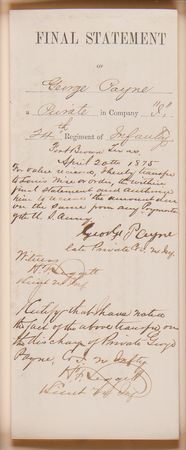 FINAL STATEMENT
OF
George Payne
a Private in Company "I",
24th Regiment of Infantry
Fort Brown Texas
April 20th 1875
For value received, I hereby transfer
to or order, the within
final statement and authorize
him to receive the amount due
on the same from any Paymaster
of the U.S. Army
George Payne
late Private Co. I 24 Inf.
Witness
H. F. Leggett
Lieut 24 Inf
I certify that I have noted
the fact of the above transfer on
the discharge of Private George
Payne, Co. I. 24 Infty
H. F. Leggett
Lieut 24 Inf